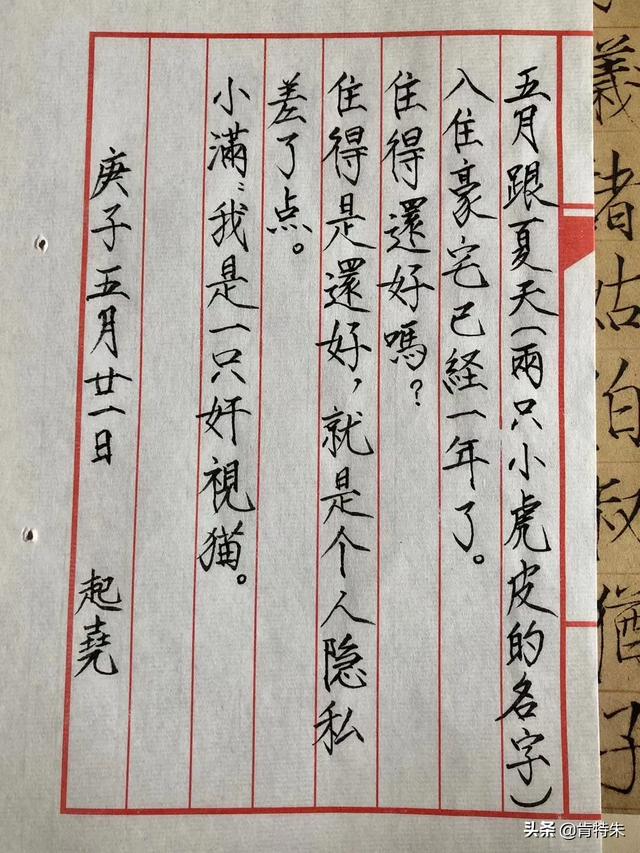 五月跟夏天(兩只小虎皮的名字)
入住豪宅已経一年了。
住得還好嗎?
住得是還好,就是个人隐私
差了点。
小滿:我是一只奸視猫。
庚子五月廿一日 起堯
義諸姑伯叔猶子
头条 @肯特朱